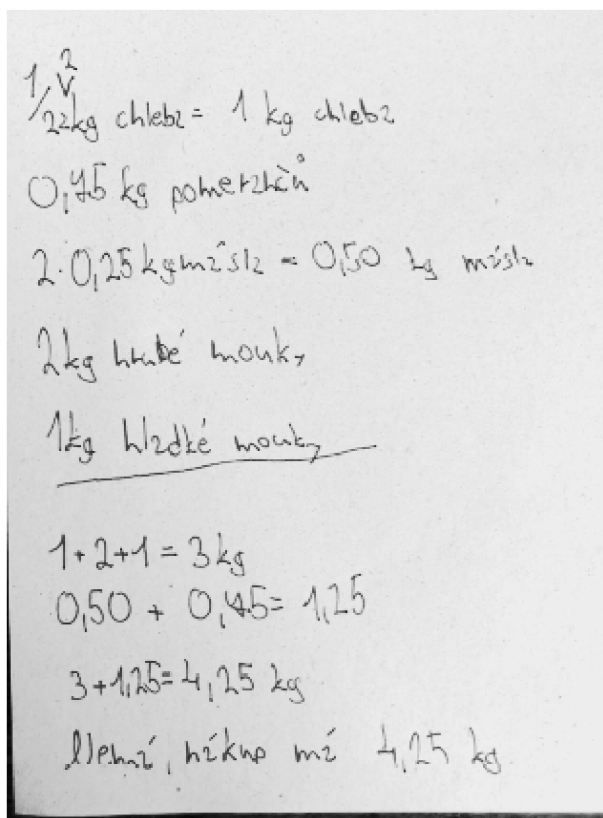 1/22kg chleba = 1 kg chleba
2
0,75 kg pomerančů
2·0,25 kg másla = 0,50 kg másla
2kg hrubé mouky
1kg hladké mouky
1+2+1=3kg
0,50 + 0,75= 1,25
3+1,25=4,25 kg
nákup má 4,25 kg